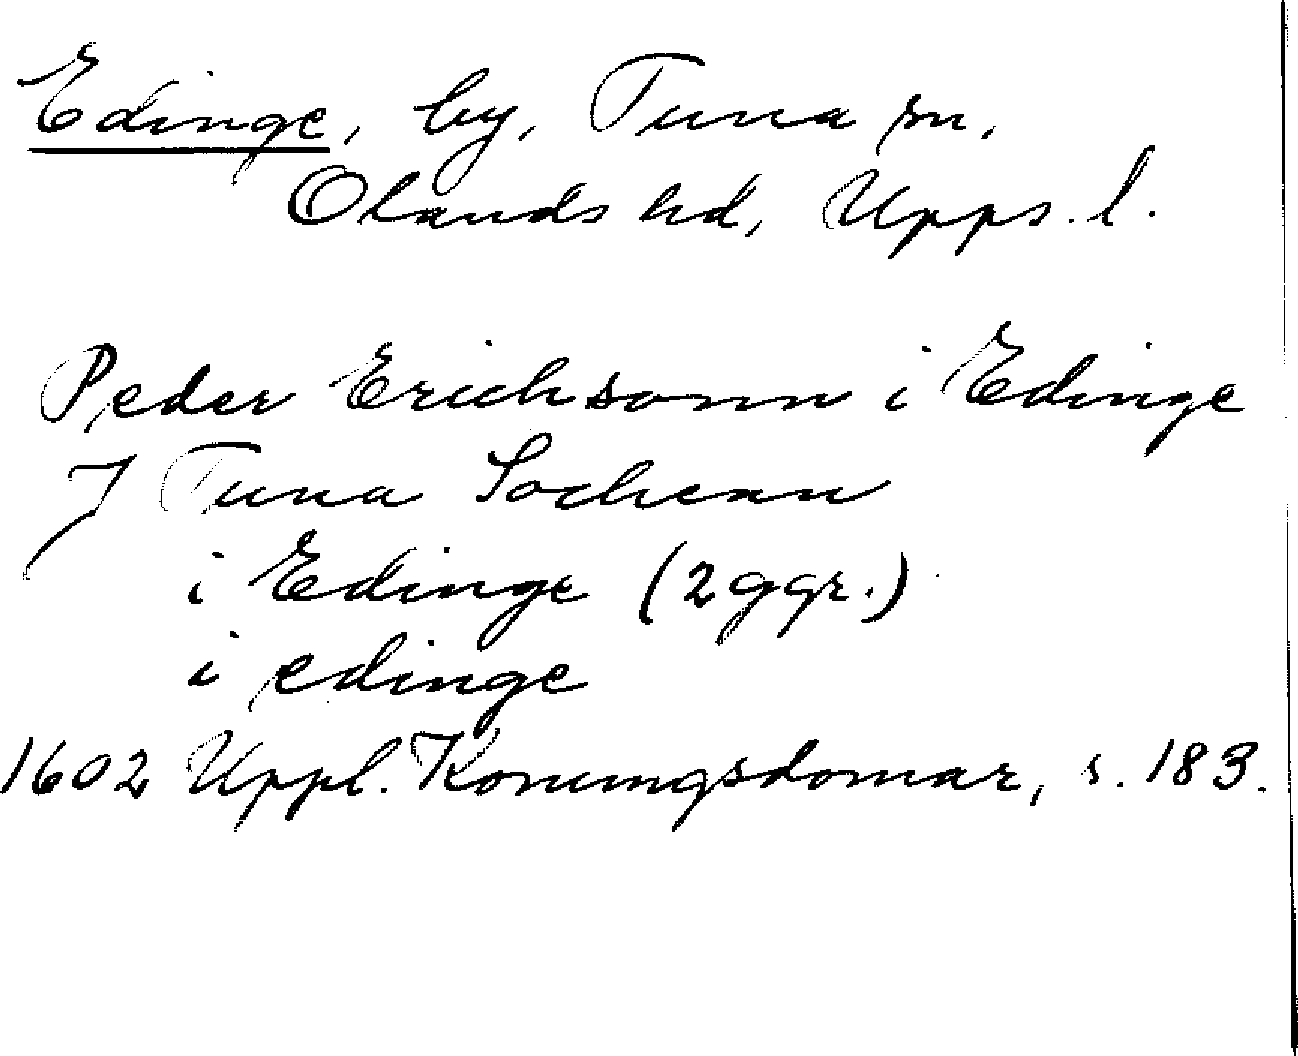 Edinge, by, Tuna sn,
Olands hd, Upps. l.
Peder Erichsonn i Edinge
J Tuna Sochenn
i Edinge (2 ggr.)
i edinge
1602 Uppl. Konungsdomar, s. 183.